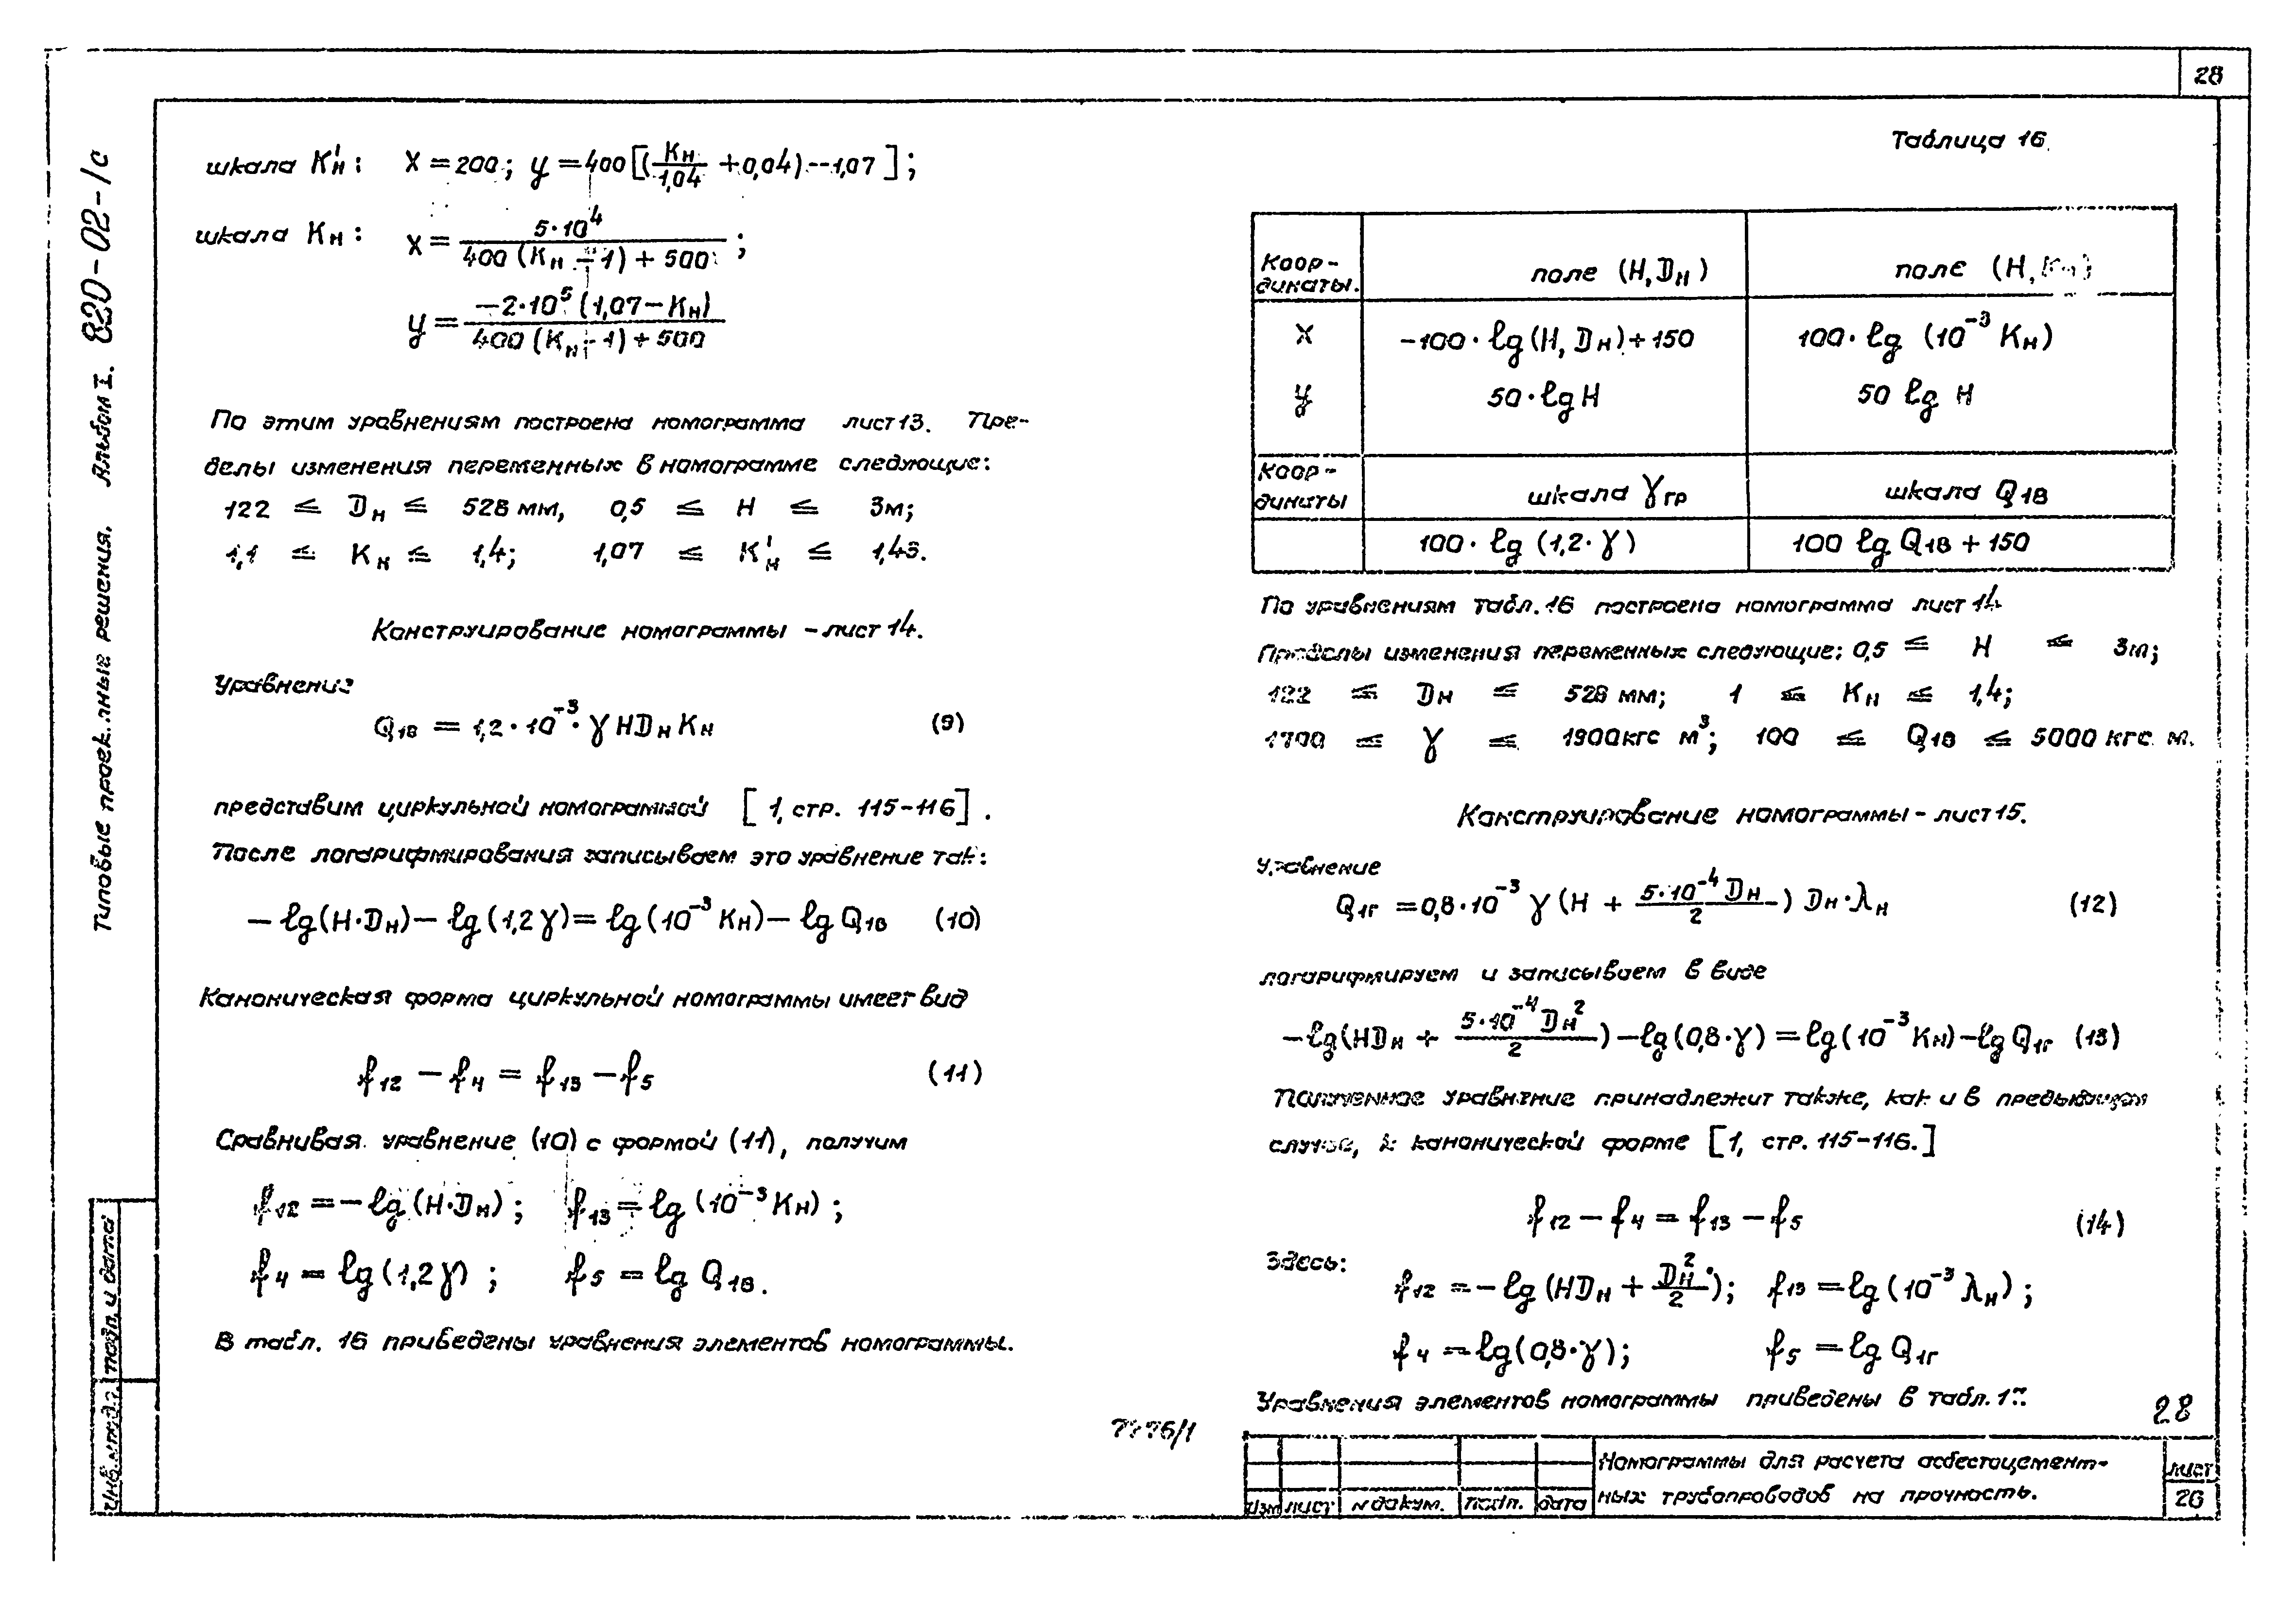 28
Типовые проек..лные решения. Альбом I. 820-02-/с
шкала K'н: x = 200; y = 400[(Kн/1,04 + 0,04) - 1,07];
шкала Kн: x = 5·10⁴ / 400(Kн - 1) + 500;
y = -2·10⁵(1,07 - Kн) / 400(Kн - 1) + 500
По этим уравнениям построена номограмма лист 13. Пре-
делы изменения переменных в номограмме следующие:
122 ≤ Dн ≤ 528 мм, 0,5 ≤ H ≤ 3м;
1,1 ≤ Kн ≤ 1,4; 1,07 ≤ K'н ≤ 1,43.
Конструирование номограммы - лист 14.
Уравнение
Q₁в = 1,2·10⁻³·γHDнKн (9)
представим циркульной номограммой [1, стр. 115-116].
После логарифмирования записываем это уравнение так:
-lg(H·Dн) - lg(1,2γ) = lg(10⁻³Kн) - lgQ₁в (10)
Каноническая форма циркульной номограммы имеет вид
f₁₂ - f₄ = f₁₃ - f₅ (11)
Сравнивая уравнение (10) с формой (11), получим
f₁₂ = -lg(H·Dн); f₁₃ = lg(10⁻³Kн);
f₄ = lg(1,2γ); f₅ = lg Q₁в.
В табл. 16 приведены уравнения элементов номограммы.
Таблица 16.
Коор-
динаты. поле (H, Dн) поле (H, Kн)
x -100·lg(H, Dн)+150 100·lg (10⁻³ Kн)
y 50·lg H 50 lg H
Коор-
динаты шкала γгр шкала Q₁в
100·lg (1,2·γ) 100 lg Q₁в + 150
По уравнениям табл. 16 построена номограмма лист 14
Пределы изменения переменных следующие: 0,5 ≤ H ≤ 3м;
122 ≤ Dн ≤ 528 мм; 1 ≤ Kн ≤ 1,4;
1700 ≤ γ ≤ 1900 кгс м³; 100 ≤ Q₁в ≤ 5000 кгс м.
Конструирование номограммы - лист 15.
Уравнение
Q₁г = 0,8·10⁻³ γ(H + 5·10⁻⁴Dн/2) Dн·λн (12)
логарифмируем и записываем в виде
-lg(HDн + 5·10⁻⁴Dн²/2) - lg(0,8·γ) = lg(10⁻³Kн) - lgQ₁г (13)
Полученное уравнение принадлежит также, как и в предыдущем
случае, к канонической форме [1, стр. 115-116.]
f₁₂ - f₄ = f₁₃ - f₅ (14)
Здесь: f₁₂ = -lg(HDн + Dн²/2); f₁₃ = lg(10⁻³λн);
f₄ = lg(0,8·γ); f₅ = lg Q₁г
Уравнения элементов номограммы приведены в табл.
28
Номограммы для расчета асбестоцемент-
ных трубопроводов на прочность.
лист
26
Изм лист N докум. подп. дата
подп. и дата